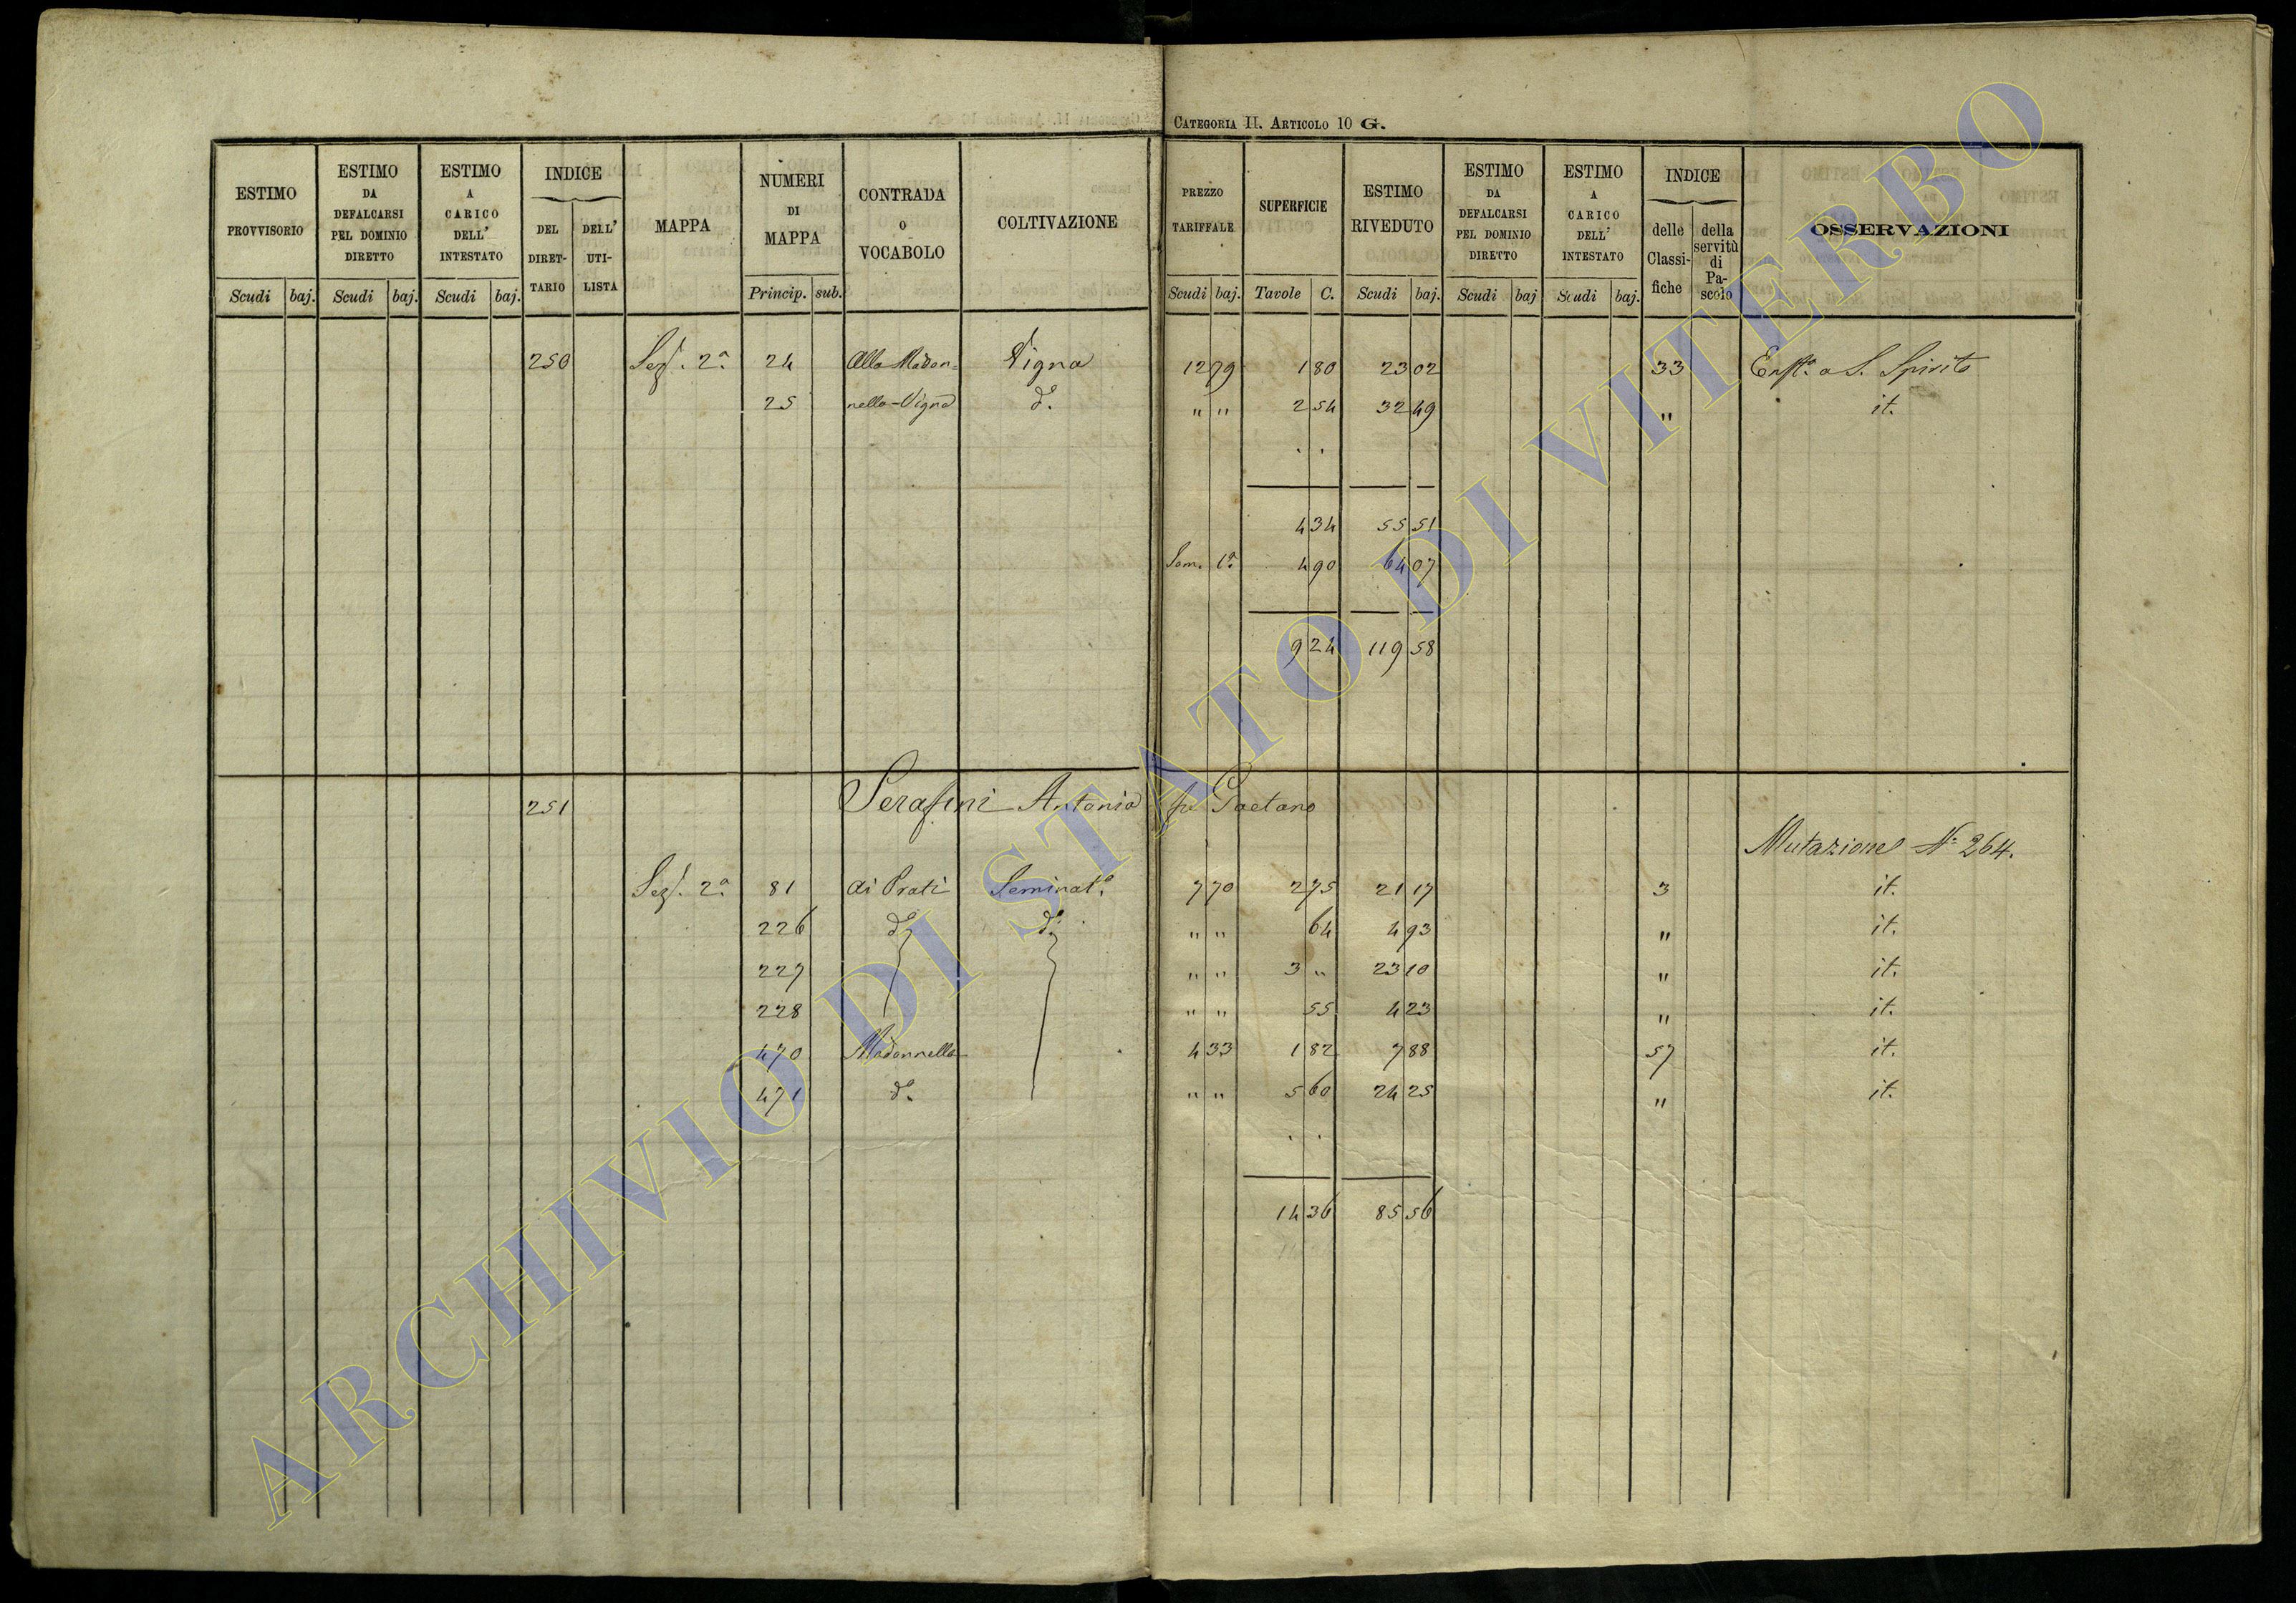 CATEGORIA II. ARTICOLO 10 G.
ESTIMO PROVVISORIO Scudi baj.
ESTIMO DA DEFALCARSI PEL DOMINIO DIRETTO Scudi baj.
ESTIMO A CARICO DELL' INTESTATO Scudi baj.
INDICE DEL DIRETTARIO DELL' UTILISTA
MAPPA
NUMERI DI MAPPA Princip. sub.
CONTRADA O VOCABOLO
COLTIVAZIONE
PREZZO TARIFFALE Scudi baj.
SUPERFICIE Tavole C.
ESTIMO RIVEDUTO Scudi baj.
ESTIMO DA DEFALCARSI PEL DOMINIO DIRETTO Scudi baj
ESTIMO A CARICO DELL' INTESTATO Scudi baj.
INDICE delle Classifiche della servitù di Pascolo
OSSERVAZIONI
250 Sez. 2a 24 Alla Madon= Vigna 12 79 1 80 23 02 33 a S. Spirito
25 nella-Vigna do. " " 2 54 32 49 " it.
4 34 55 51
Som. 1a 4 90 64 07
9 24 119 58
251 Serafini Antonio fu Gaetano
Mutazione No 264.
Sez. 2a 81 ai Prati Seminato. 7 70 2 75 21 17 3 it.
226 do do " " 64 4 93 " it.
227 " " 3 " 23 10 " it.
228 " " 55 4 23 " it.
470 Madonnella 4 33 1 82 7 88 57 it.
471 do. " " 5 60 24 25 " it.
14 36 85 56
ARCHIVIO DI STATO DI VITERBO